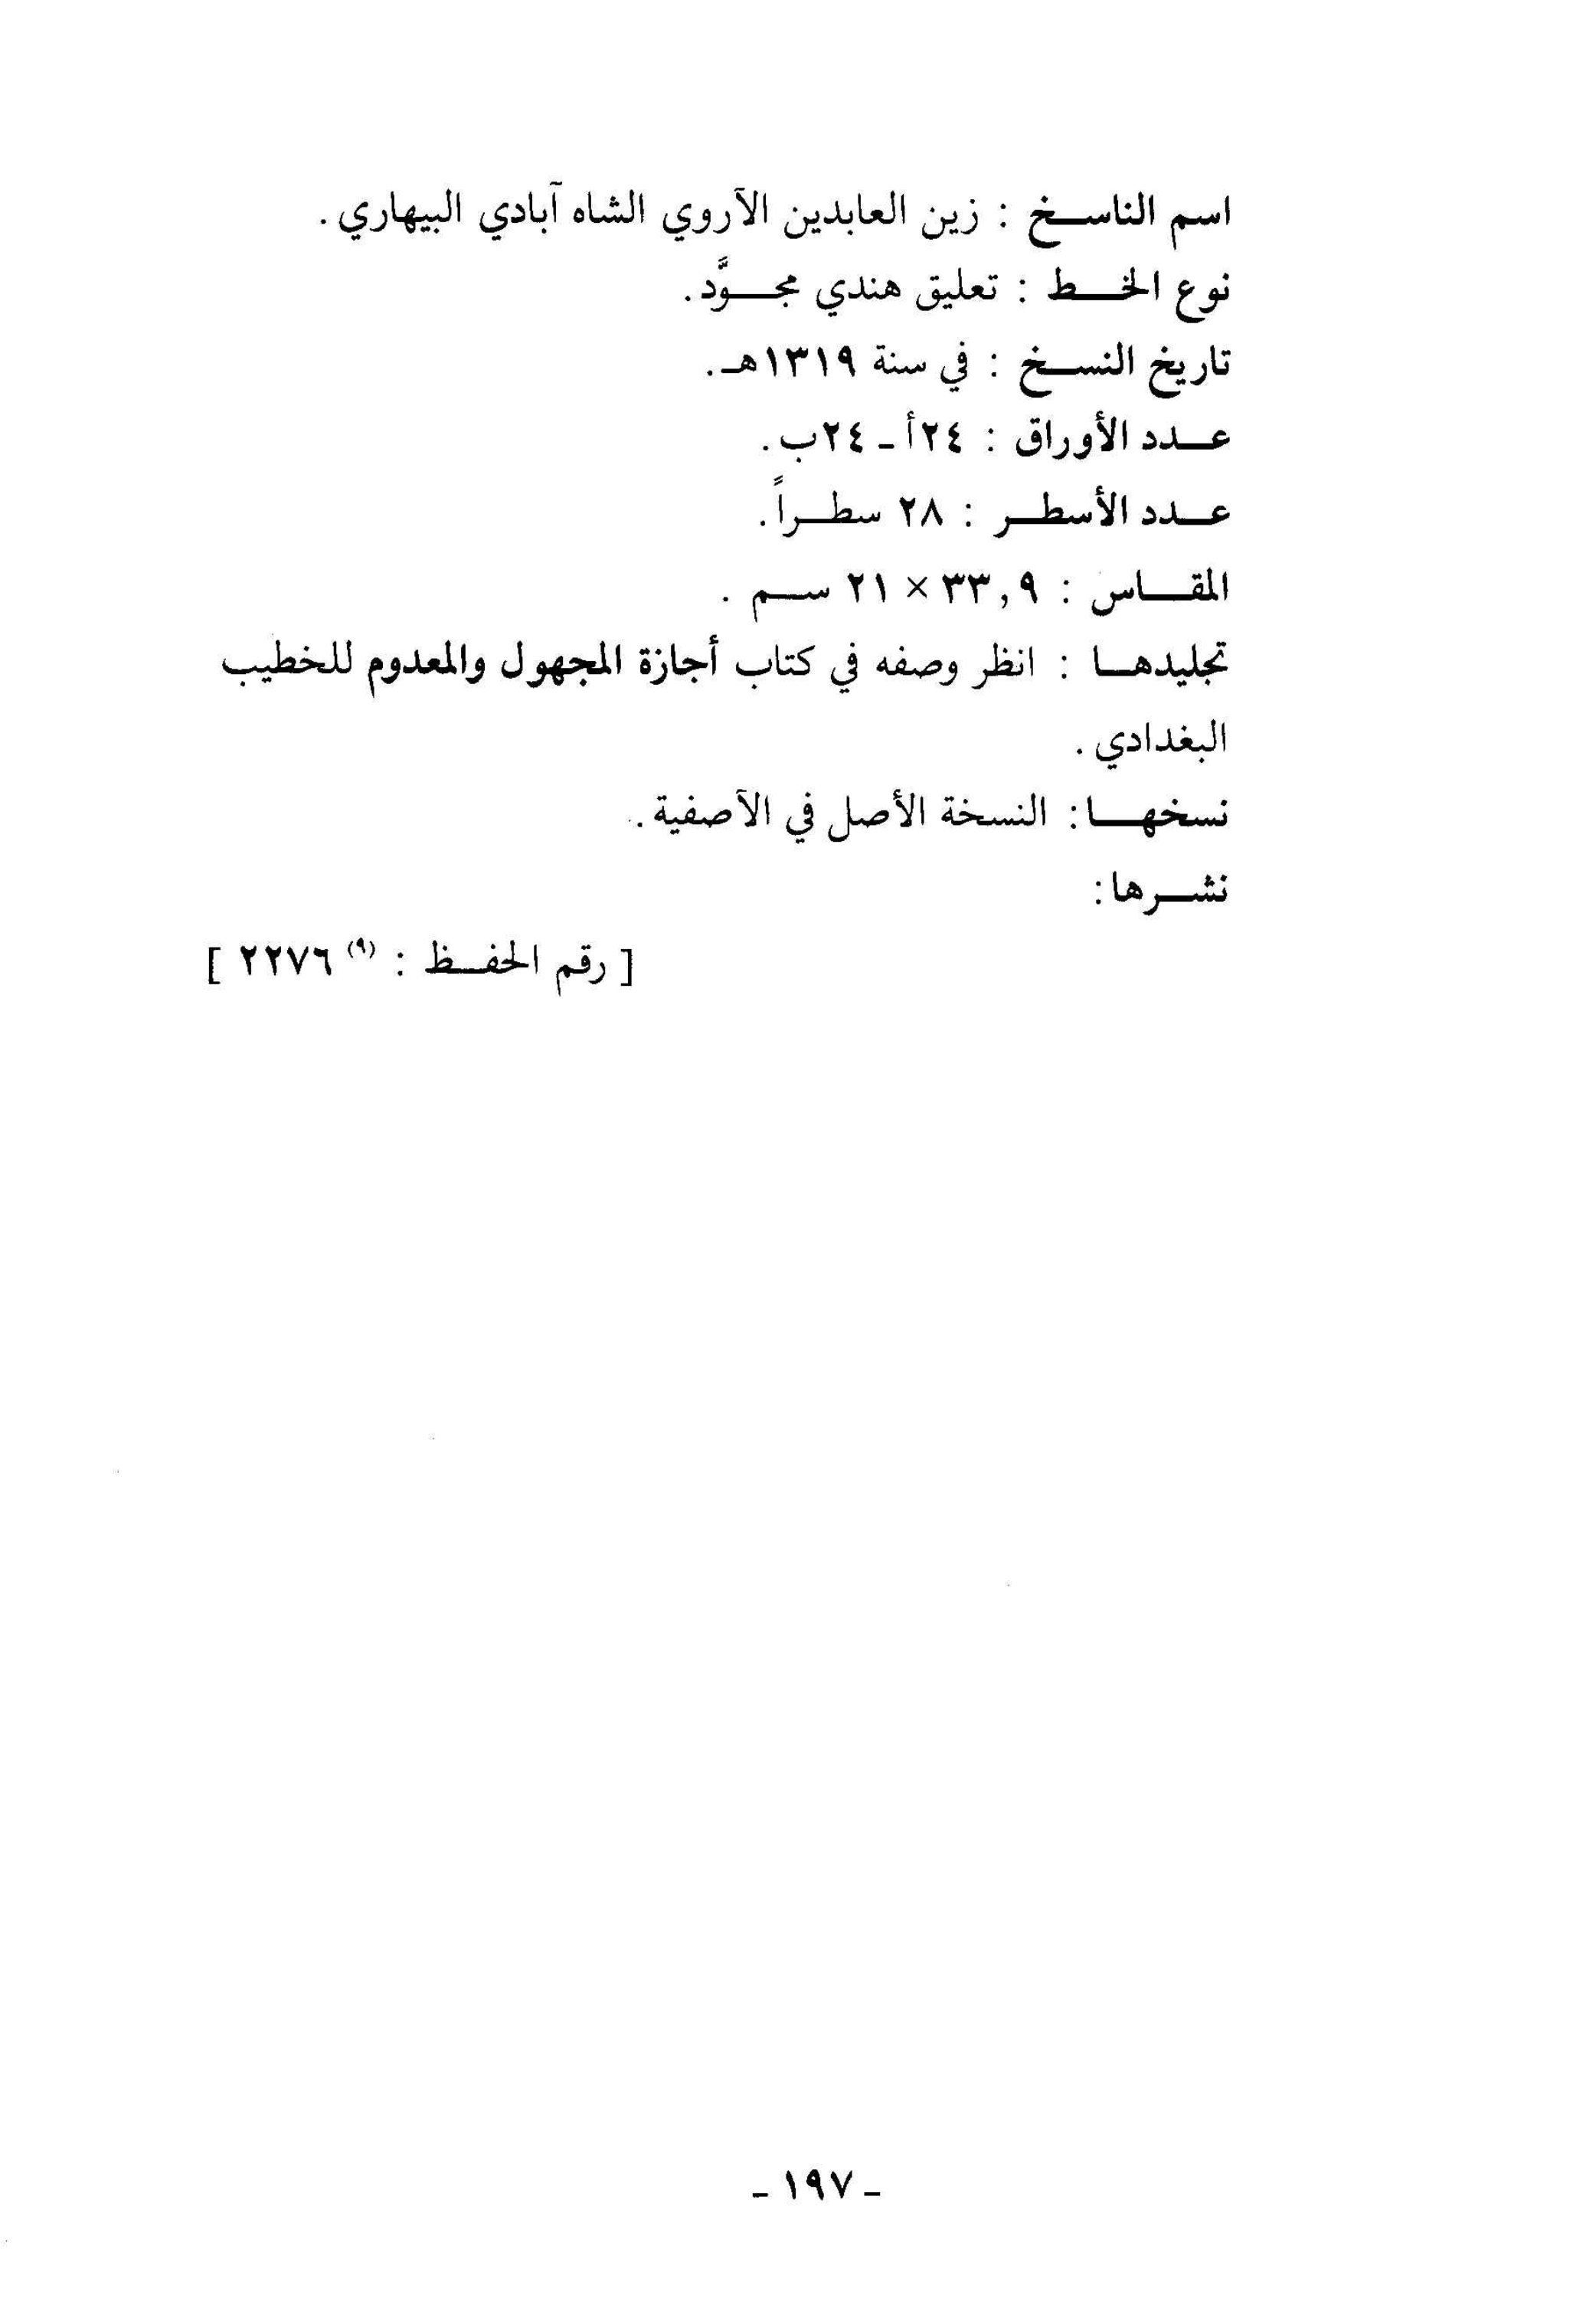 اسم الناسخ : زين العابدين الآروي الشاه آبادي البيهاري .
نوع الخط : تعليق هندي مجوَّد .
تاريخ النسخ : في سنة ١٣١٩هـ .
عدد الأوراق : ٢٤أ - ٢٤ب .
عدد الأسطر : ٢٨ سطراً .
المقاس : ٣٣,٩ × ٢١ سم .
تجليدها : انظر وصفه في كتاب أجازة المجهول والمعدوم للخطيب
البغدادي .
نسخها : النسخة الأصل في الآصفية .
نشرها :
[ رقم الحفظ : (٩) ٢٢٧٦ ]
- ١٩٧ -